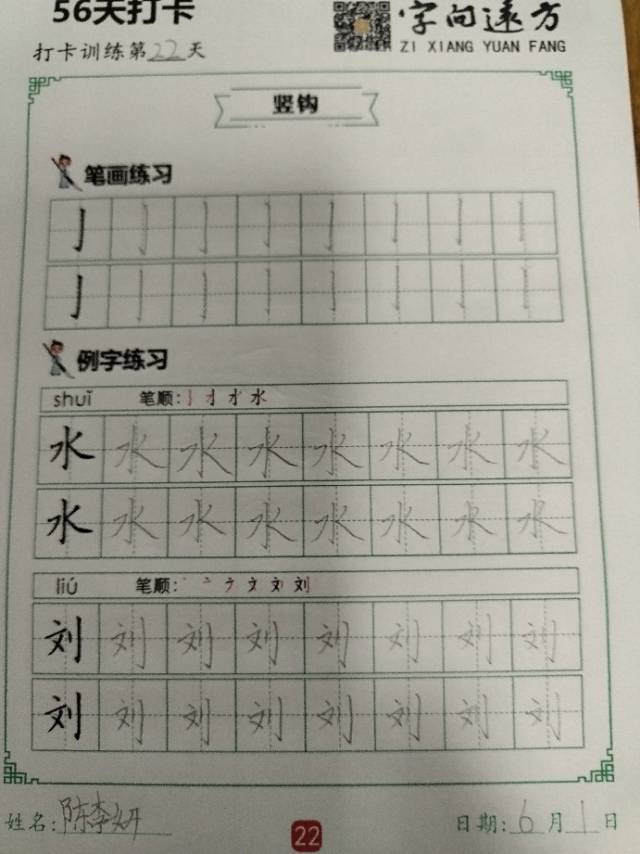 56天打卡
字向远方
ZI XIANG YUAN FANG
打卡训练第22天
竖钩
笔画练习
亅 亅 亅 亅 亅 亅 亅 亅
亅 亅 亅 亅 亅 亅 亅 亅
例字练习
shuǐ 笔顺:
水 水 水 水 水 水 水 水
水 水 水 水 水 水 水 水
liú 笔顺:
刘 刘 刘 刘 刘 刘 刘 刘
刘 刘 刘 刘 刘 刘 刘 刘
姓名:陈李妍
22
日期:6月1日